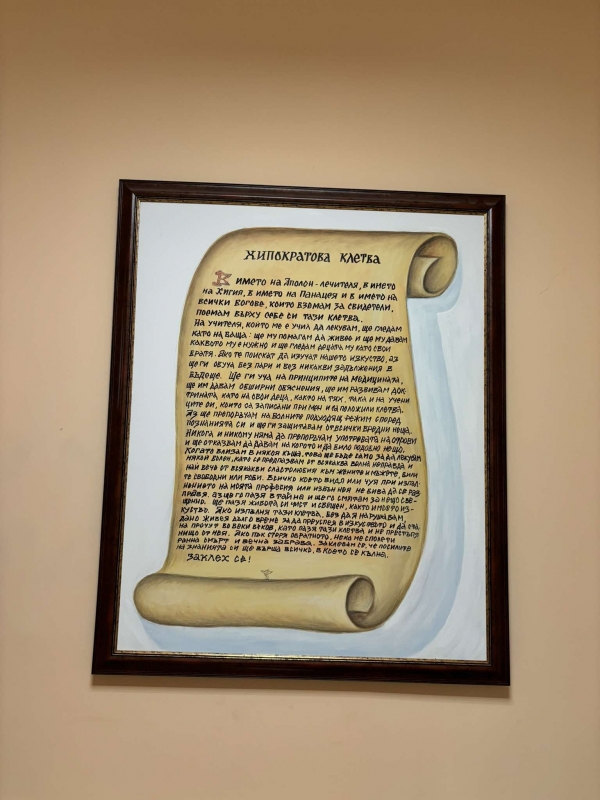 ХИПОКРАТОВА КЛЕТВА
В ИМЕТО НА АПОЛОН-ЛЕЧИТЕЛЯ, В ИМЕТО
НА ХИГИЯ, В ИМЕТО НА ПАНАЦЕЯ И В ИМЕТО НА
ВСИЧКИ БОГОВЕ, КОИТО ВЗЕМАМ ЗА СВИДЕТЕЛИ,
ПОЕМАМ ВЪРХУ СЕБЕ СИ ТАЗИ КЛЕТВА.
НА УЧИТЕЛЯ, КОЙТО МЕ Е УЧИЛ ДА ЛЕКУВАМ, ЩЕ ГЛЕДАМ
КАТО НА БАЩА: ЩЕ МУ ПОМАГАМ ДА ЖИВЕЕ И ЩЕ МУ ДАВАМ
КАКВОТО МУ Е НУЖНО И ЩЕ ГЛЕДАМ ДЕЦАТА МУ КАТО СВОИ
БРАТЯ. АКО ТЕ ПОИСКАТ ДА ИЗУЧАТ НАШЕТО ИЗКУСТВО, АЗ
ЩЕ ГИ ОБУЧА БЕЗ ПАРИ И БЕЗ НИКАКВИ ЗАДЪЛЖЕНИЯ В
БЪДЕЩЕ. ЩЕ ГИ УЧА НА ПРИНЦИПИТЕ НА МЕДИЦИНАТА,
ЩЕ ИМ ДАВАМ ОБШИРНИ ОБЯСНЕНИЯ, ЩЕ ИМ РАЗВИВАМ ДОК
ТРИНАТА, КАТО НА СВОИ ДЕЦА, КАКТО НА ТЯХ, ТАКА И НА УЧЕНИ
ЦИТЕ СИ, КОИТО СА ЗАПИСАНИ ПРИ МЕН И СА ПОЛОЖИЛИ КЛЕТВА.
АЗ ЩЕ ПРЕПОРЪЧАМ НА БОЛНИТЕ ПОДХОДЯЩ РЕЖИМ СПОРЕД
ПОЗНАНИЯТА СИ И ЩЕ ГИ ЗАЩИТАВАМ ОТ ВСИЧКИ ВРЕДНИ НЕЩА.
НИКОГА И НИКОМУ НЯМА ДА ПРЕПОРЪЧАМ УПОТРЕБАТА НА ОТРОВИ
И ЩЕ ОТКАЗВАМ ДА ДАВАМ НА КОГОТО И ДА БИЛО ПОДОБНО НЕЩО.
КОГАТО ВЛИЗАМ В НЯКОЯ КЪЩА, ТОВА ЩЕ БЪДЕ САМО ЗА ДА ЛЕКУВАМ
НЯКОЙ БОЛЕН, КАТО СЕ ПРЕДПАЗВАМ ОТ ВСЯКАКВА ВОЛНА НЕПРАВДА И
НАЙ ВЕЧЕ ОТ ВСЯКАКВИ СЛАСТОЛЮБИЯ КЪМ ЖЕНИТЕ И МЪЖЕТЕ, БИЛИ
ТЕ СВОБОДНИ ИЛИ РОБИ. ВСИЧКО КОЕТО ВИДЯ ИЛИ ЧУЯ ПРИ ИЗПЪЛ-
НЕНИЕТО НА МОЯТА ПРОФЕСИЯ ИЛИ ИЗВЪН НЕЯ НЕ БИВА ДА СЕ РАЗ
ПРАВЯ. АЗ ЩЕ ГО ПАЗЯ В ТАЙНА И ЩЕ ГО СМЯТАМ ЗА НЕЩО СВЕ-
ЩЕННО. ЩЕ ПАЗЯ ЖИВОТА СИ ЧИСТ И СВЕЩЕН, КАКТО И МОЕТО ИЗ-
КУСТВО. АКО ИЗПЪЛНЯ ТАЗИ КЛЕТВА, БЕЗ ДА Я НАРУШАВАМ,
ДАНО ЖИВЕЯ ДЪЛГО ВРЕМЕ ЗА ДА ПРЕУСПЕЯ В ИЗКУСТВОТО И ДА СТА
НА ПРОЧУТ ВО ВЕКИ ВЕКОВ, КАТО ПАЗЯ ТАЗИ КЛЕТВА И НЕ ПРЕСТЪПЯ
НИЩО ОТ НЕЯ. АКО ПЪК СТОРЯ ОБРАТНОТО, НЕКА МЕ СПОЛЕТИ
РАННА СМЪРТ И ВЕЧНА ЗАБРАВА. ЗАКЛЕВАМ СЕ, ЧЕ
НА ЗНАНИЯТА СИ ЩЕ ВЪРША ВСИЧКО, В КОЕТО СЕ КЪЛНА.
ЗАКЛЕХ СЕ!